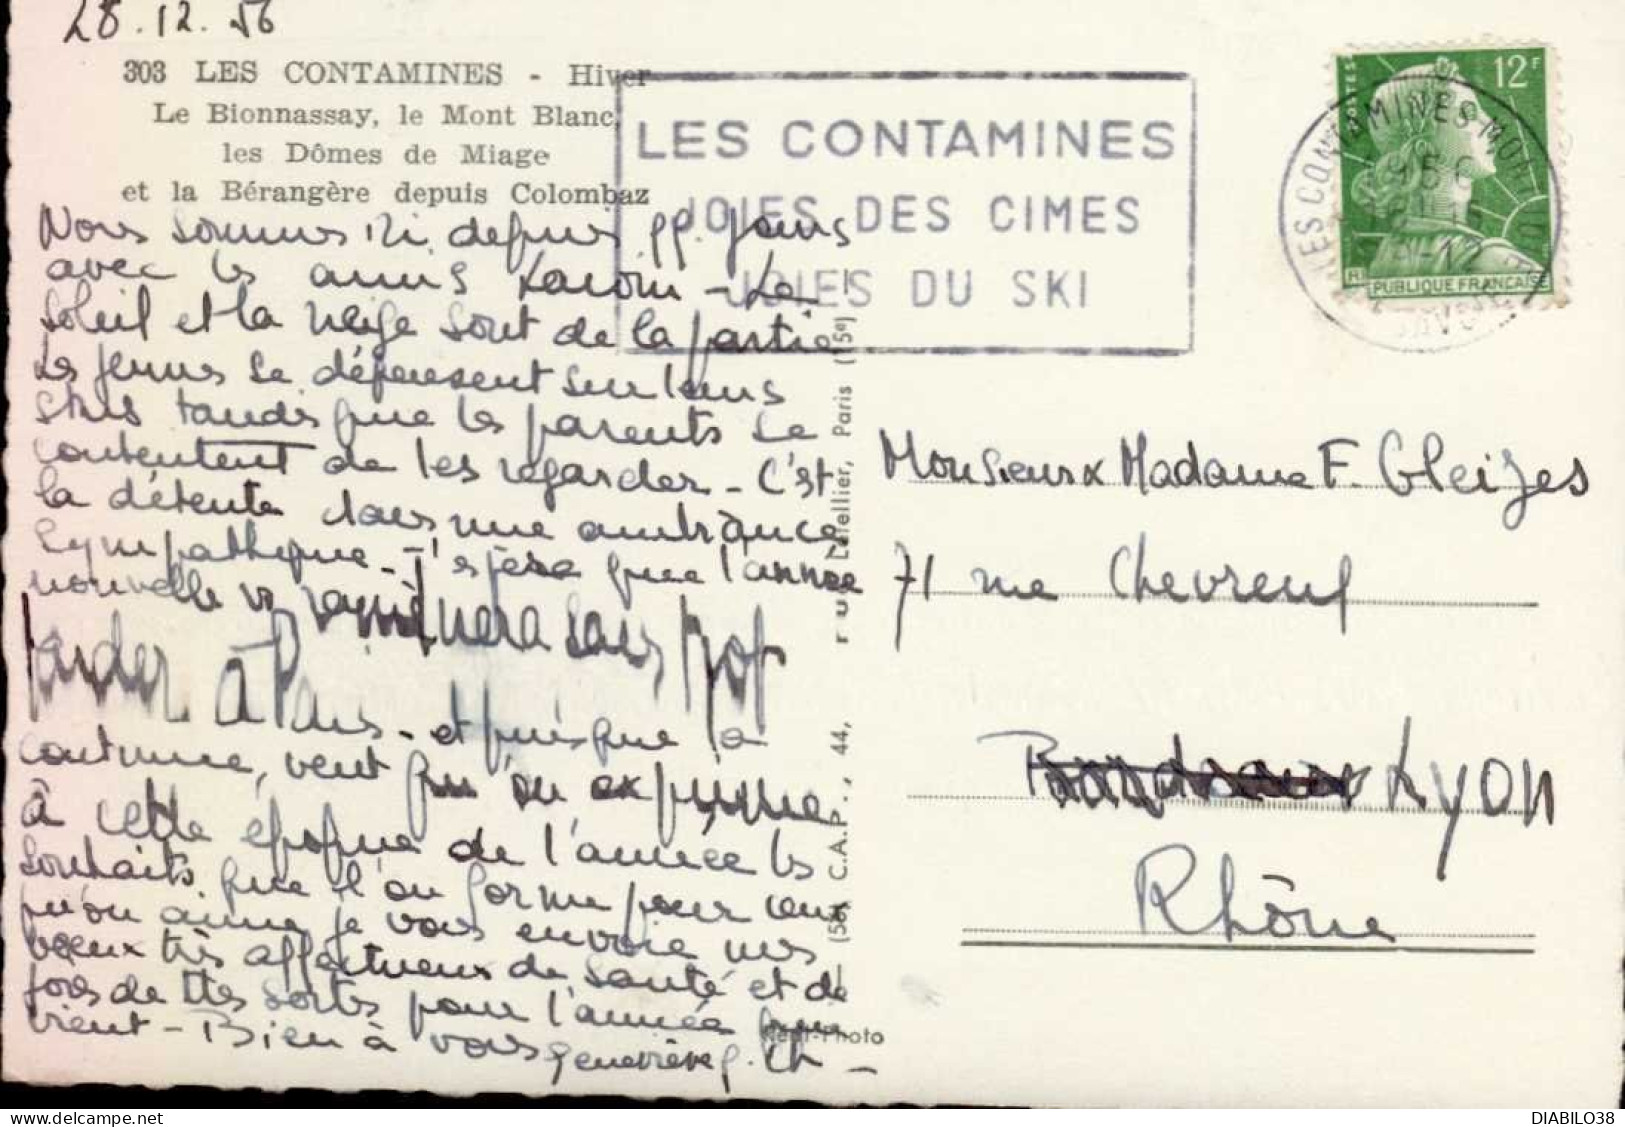 28.12.56
303 LES CONTAMINES - Hiver
Le Bionnassay, le Mont Blanc,
les Dômes de Miage
et la Bérangère depuis Colombaz
Nous sommes ici depuis qq. jours
avec les amis - Le
soleil et la neige sont de la partie
Les jeunes se dépensent sur leurs
skis tandis que les parents se
contentent de les regarder - C'est
la détente dans une ambiance
sympathique - J'espère que l'année
nouvelle vs ramènera sans trop
tarder à Paris - et puisque la
coutume, veut qu'on exprime
à cette époque de l'année les
souhaits que l'on forme pour ceux
qu'on aime je vous envoie mes
voeux très affectueux de santé et de
joies de ttes sortes pour l'année qui
vient - Bien à vous Geneviève
LES CONTAMINES
JOIES DES CIMES
JOIES DU SKI
POSTES
12F
RÉPUBLIQUE FRANÇAISE
LES CONTAMINES-MONTJOIE
1956
Monsieur & Madame F. Gleizes
71 rue Chevreul
Bordeaux Lyon
Rhône
C.A.P., 44, rue Letellier, Paris (15e)
Réel-Photo
DIABILO38